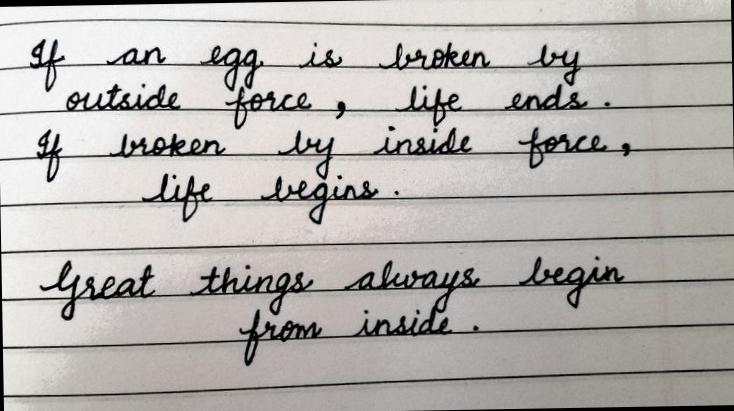 If an egg is broken by
outside force, life ends.
If broken by inside force,
life begins.
Great things always begin
from inside.